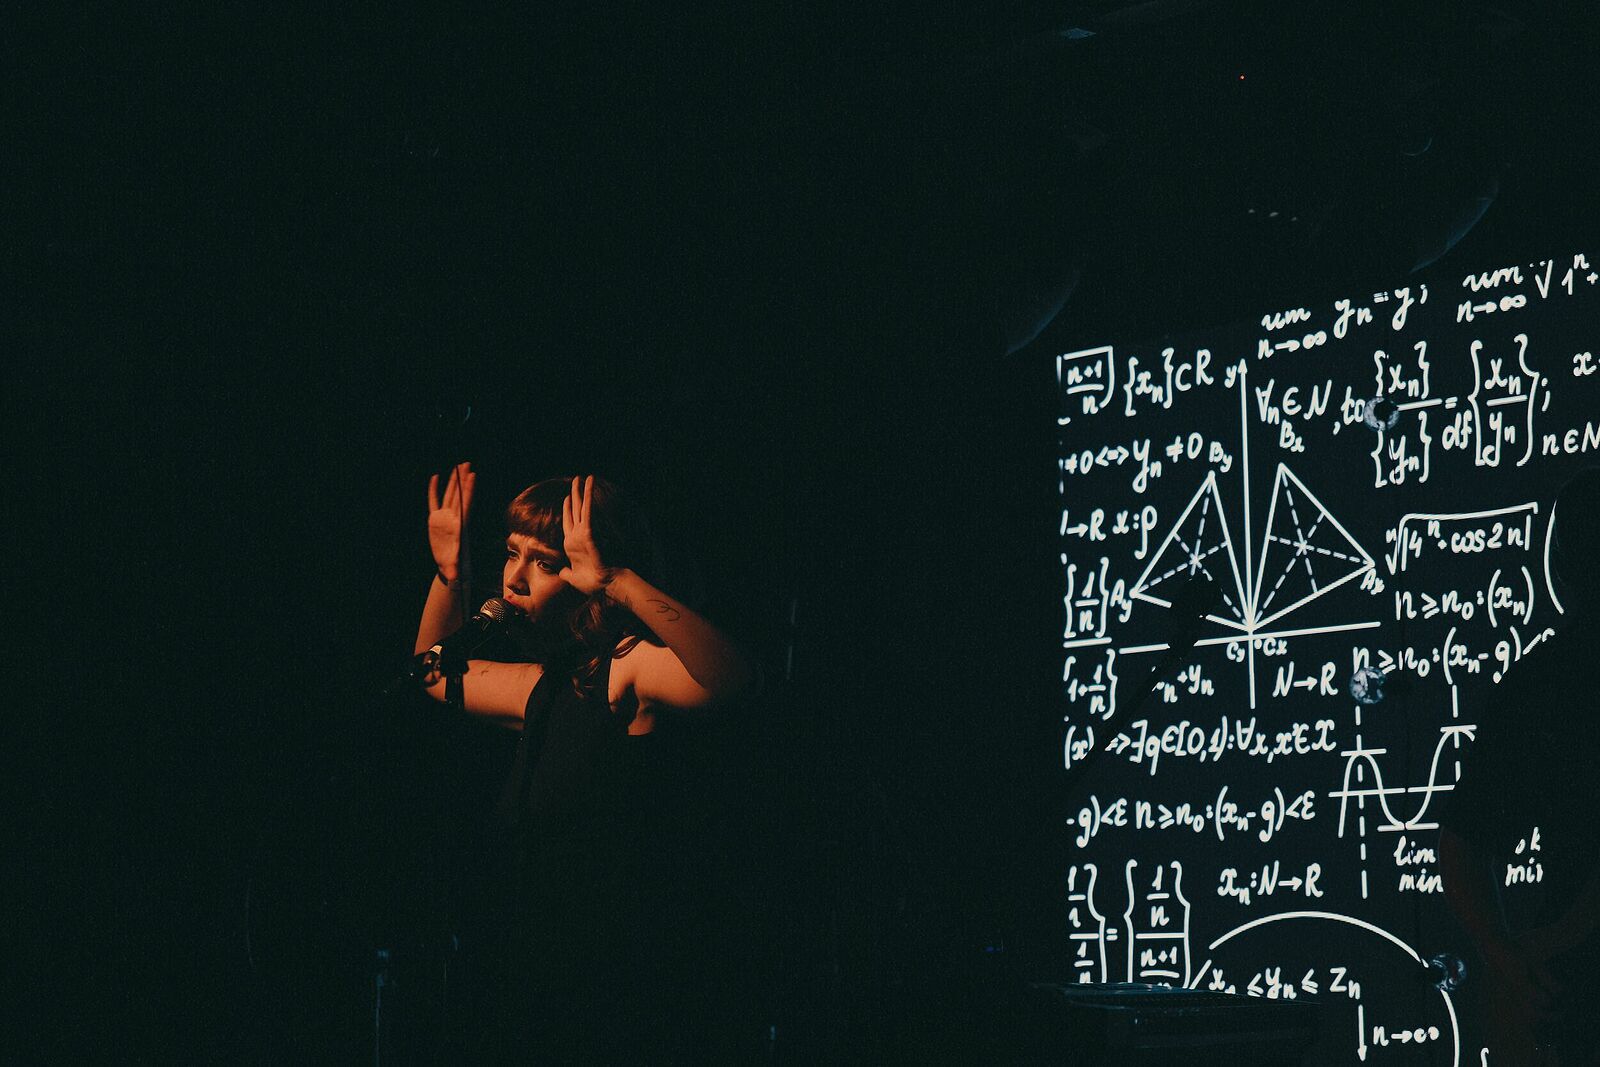 lim n→∞ yₙ = y;
lim n→∞ ⁿ√1ⁿ+
n+1/n {xₙ}⊂R y
∀n∈N, to {xₙ}/{yₙ} df= {xₙ/yₙ}; x
≠0<=>yₙ≠0 By
Bx
n∈N
→R x:ρ
ⁿ√|4ⁿ+cos2n|
{1/n} Ay
Ax
n⩾n₀:(xₙ)
Cy Cx
n⩾n₀:(xₙ-g)
{1+1/n}
ₙ+yₙ N→R
(x) =>∃q∈[0,1):∀x,x'∈X
-g)<ε n⩾n₀:(xₙ-g)<ε
lim min
1/n = {1/n
xₙ:N→R
n+1
xₙ ⩽yₙ⩽ zₙ
n→∞